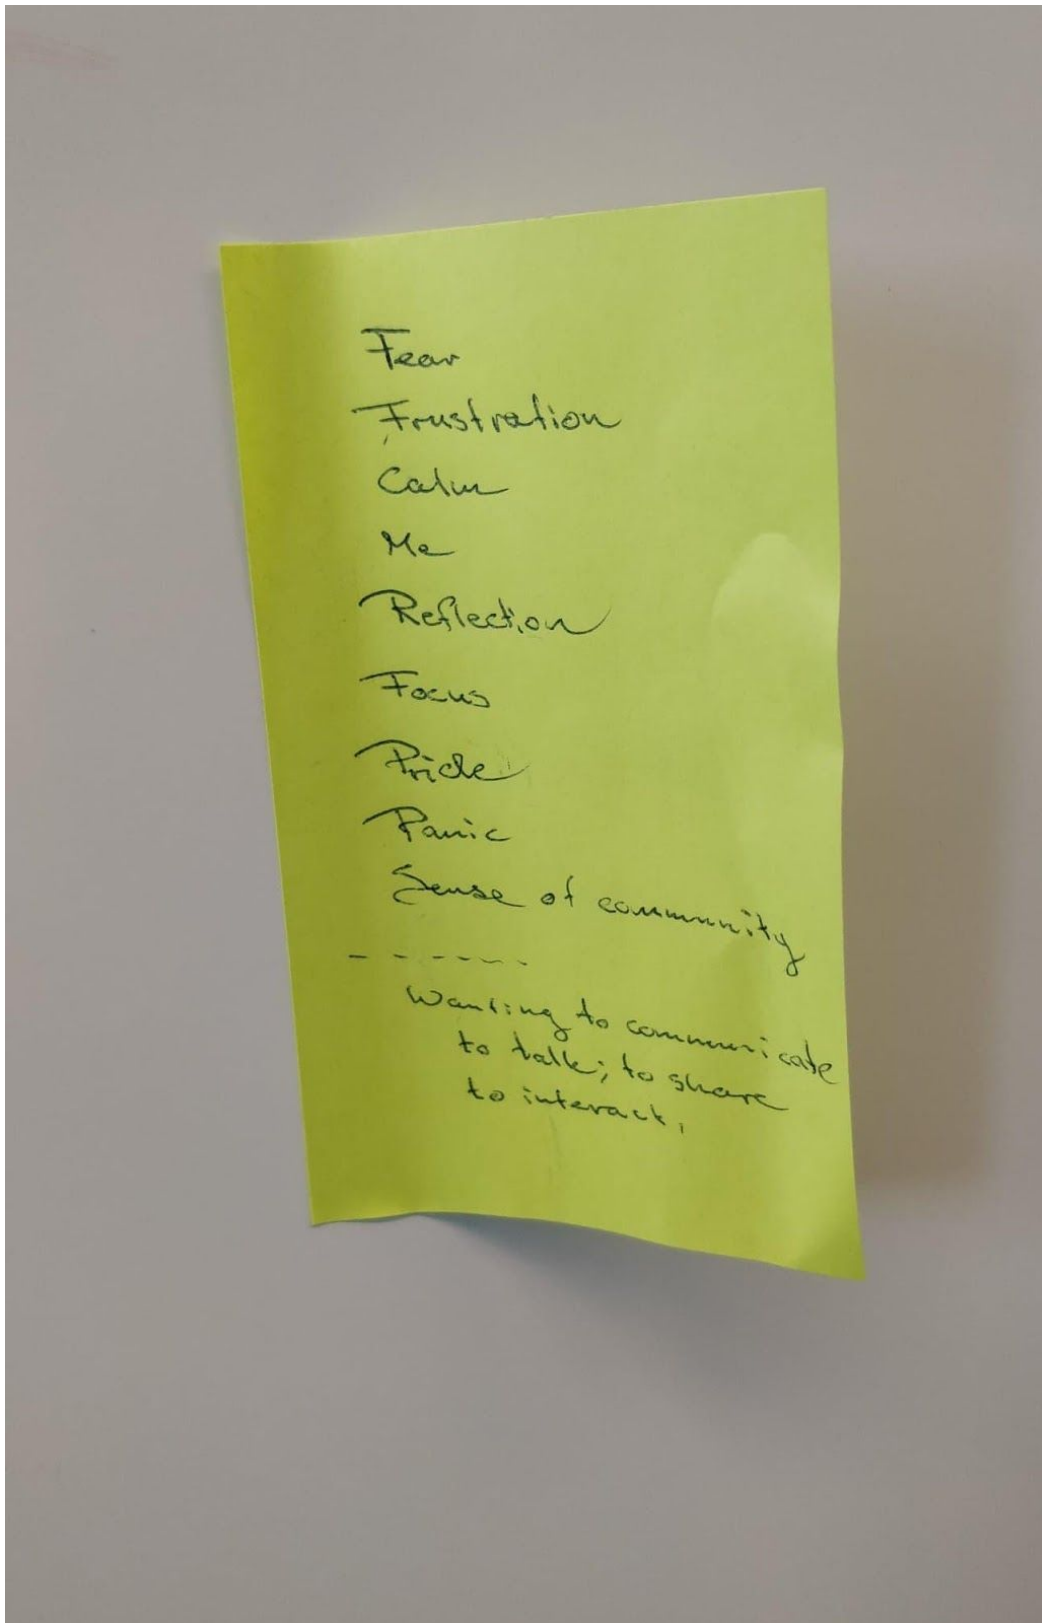 Fear
Frustration
Calm
Me
Reflection
Focus
Pride
Panic
Sense of community
- - - - - - -
Wanting to communicate
to talk; to share
to interact.